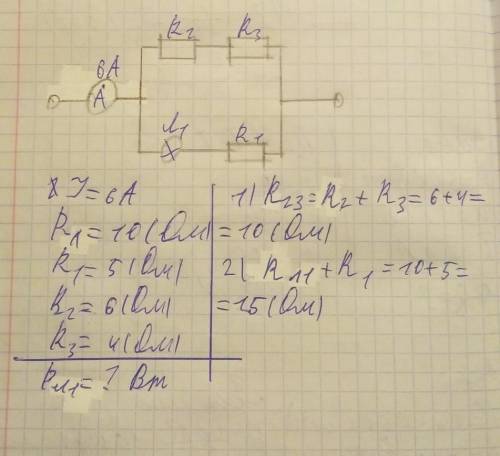 R2 R3
6A
A
Л1 R1
I = 6A
RЛ1 = 10(Ом)
R1 = 5(Ом)
R2 = 6(Ом)
R3 = 4(Ом)
PЛ1 = ? Вт
1) R23 = R2 + R3 = 6+4=
= 10(Ом)
2) RЛ1 + R1 = 10+5=
= 15(Ом)